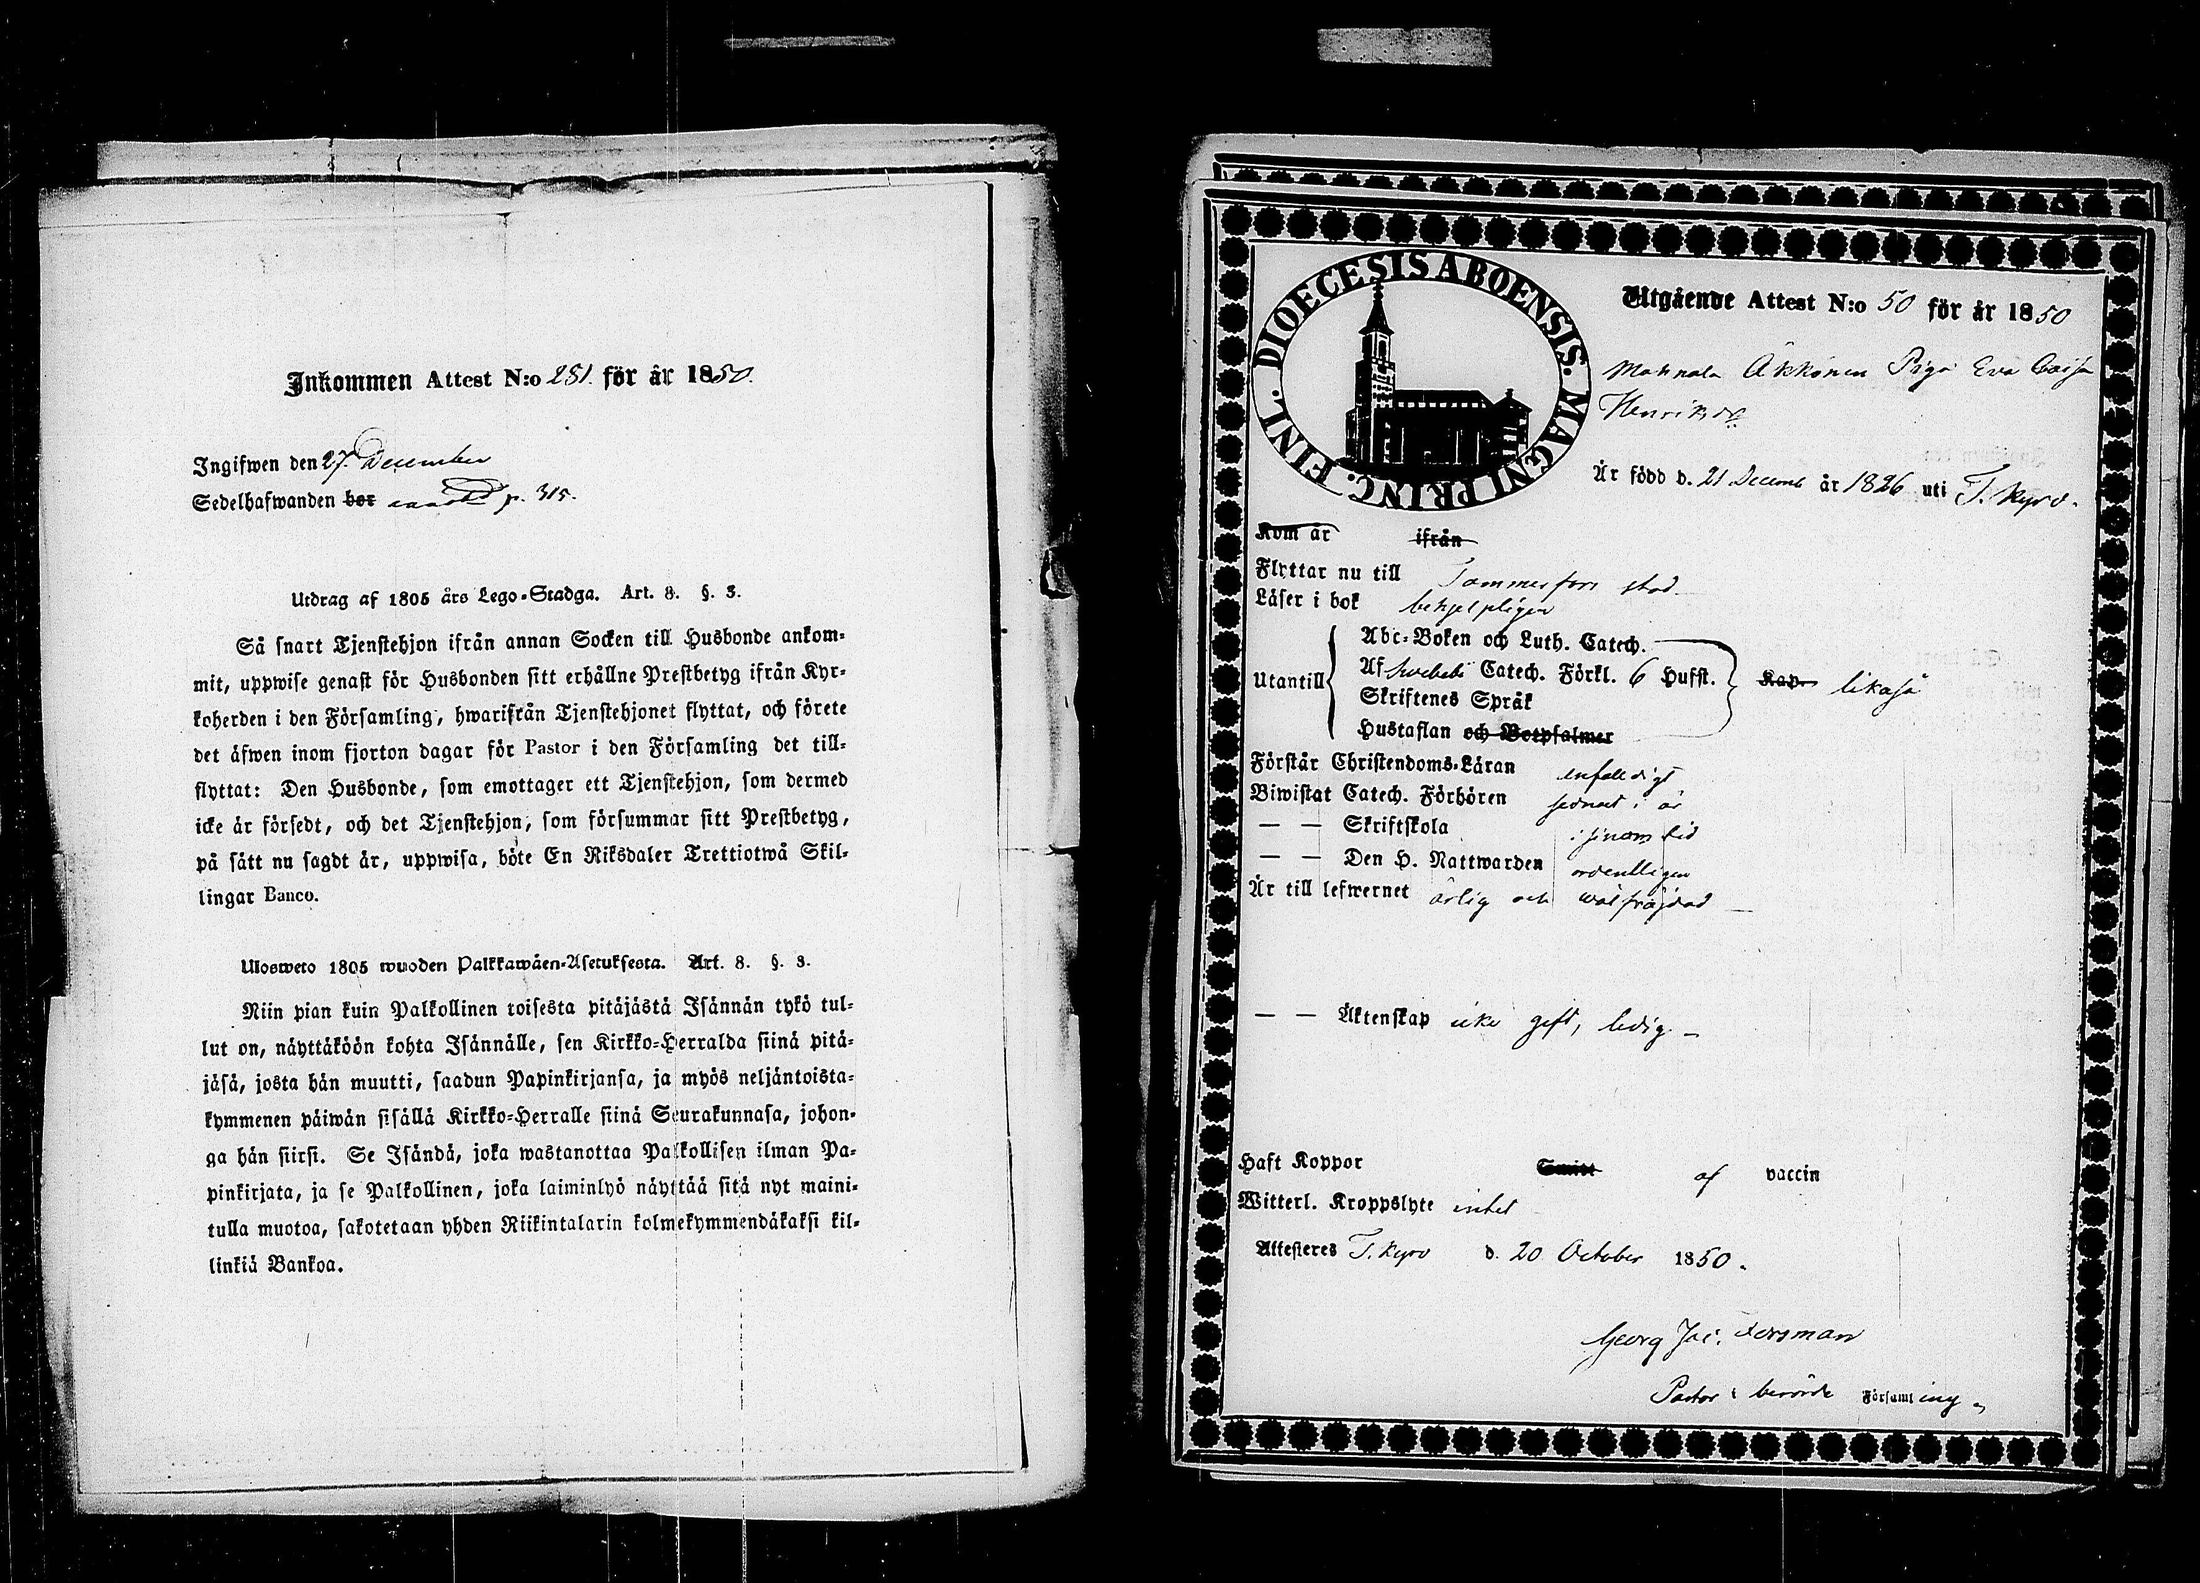 Inkommen Attest N:o 251. för år 1850.
Ingifwen den 27. December
Sedelhafwanden bor p. 315.
Utdrag af 1805 års Lego-Stadga. Art. 8. §. 3.
Så snart Tjenstehjon ifrån annan Socken till Husbonde ankom-
mit, uppwise genast för Husbonden sitt erhållne Prestbetyg ifrån Kyr-
koherden i den Församling, hwarifrån Tjenstehjonet flyttat, och förete
det äfwen inom fjorton dagar för Pastor i den Församling det till-
flyttat: Den Husbonde, som emottager ett Tjenstehjon, som dermed
icke är försedt, och det Tjenstehjon, som försummar sitt Prestbetyg,
på sätt nu sagdt är, uppwisa, böte En Riksdaler Trettiotwå Skil-
lingar Banco.
Ulosweto 1805 wuoden Palkkawäen-Asetuksesta. Art. 8. §. 3.
Niin pian kuin Palkollinen toisesta pitäjästä Isännän tykö tul-
lut on, näyttäköön kohta Isännälle, sen Kirkko-Herralda siinä pitä-
jäsä, josta hän muutti, saadun Papinkirjansa, ja myös neljäntoista-
kymmenen päiwän sisällä Kirkko-Herralle siinä Seurakunnasa, johon-
ga hän siirsi. Se Isändä, joka wastanottaa Palkollisen ilman Pa-
pinkirjata, ja se Palkollinen, joka laiminlyö näyttää sitä nyt maini-
tulla muotoa, sakotetaan yhden Riikintalarin kolmekymmendäkaksi kil-
linkiä Bankoa.
DIOECESIS ABOENSIS. MAGNI PRINC. FINL.
Utgående Attest N:o 50 för år 1850
Mannala Äkkönen Piga Eva Caisa
Henriksdr
Är född d. 21 Decemb år 1826 uti T. Kyro.
Kom år ifrån
Flyttar nu till Tammerfors stad
Läser i bok behjelpligen
Abc-Boken och Luth. Catech.
Utantill Af Svebelii Catech. Förkl. 6 Hufst. Kap. likaså
Skriftenes Språk
Hustaflan och Botpsalmer
Förstår Christendoms-Läran enfaldigt
Biwistat Catech. Förhören sednast i år
— — Skriftskola i sinom tid
— — Den H. Nattwarden ordentligen
Är till lefwernet ärlig och wälfräjdad
— — Äktenskap icke gift, ledig
Haft Koppor Smitt af vaccin
Witterl. Kroppslyte intet
Attesteres T. Kyro d. 20 October 1850.
Georg Jac. Forsman
Pastor i berörde Församling